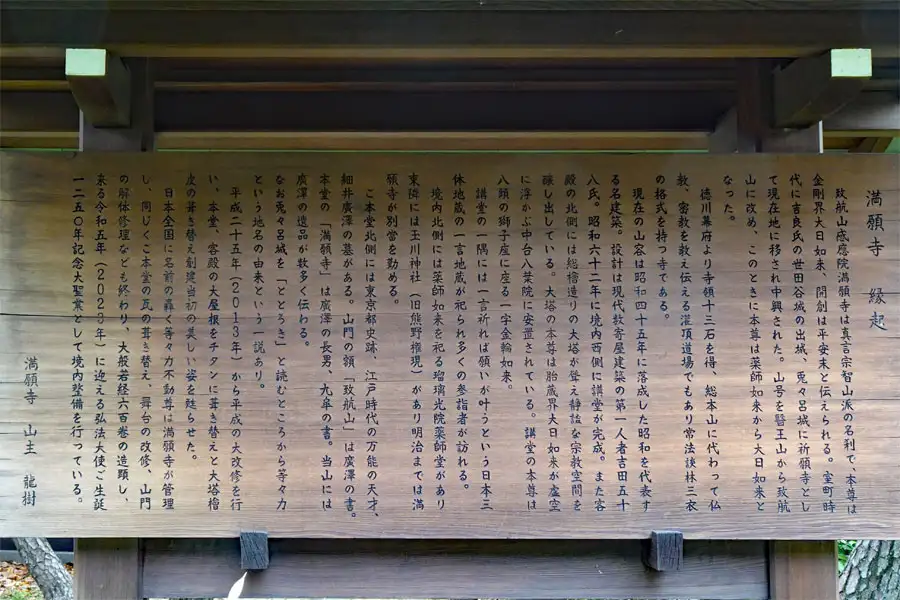 満願寺 縁起
致航山感應院満願寺は真言宗智山派の名刹で、本尊は
金剛界大日如来、開創は平安末と伝えられる。室町時
代に吉良氏の世田谷城の出城、兎々呂城に祈願寺とし
て現在地に移され中興された。山号を醫王山から致航
山に改め、このときに本尊は薬師如来から大日如来と
なった。
徳川幕府より寺領十三石を得、総本山に代わって仏
教、密教を教え伝える灌頂道場でもあり常法談林三衣
の格式を持つ寺である。
現在の山容は昭和四十五年に落成した昭和を代表す
る名建築。設計は現代数寄屋建築の第一人者吉田五十
八氏。昭和六十二年に境内西側に講堂が完成。また客
殿の北側には総檜造りの大塔が聳え静謐な宗教空間を
醸し出している。大塔の本尊は胎蔵界大日如来が虚空
に浮かぶ中台八葉院に安置されている。講堂の本尊は
八頭の獅子座に座る一字金輪如来。
講堂の一隅には一言祈れば願いが叶うという日本三
体地蔵の一言地蔵が祀られ多くの参詣者が訪れる。
境内北側には薬師如来を祀る瑠璃光院薬師堂があり
東隣には玉川神社（旧熊野権現）があり明治までは満
願寺が別當を勤める。
この本堂北側には東京都史跡、江戸時代の万能の天才、
細井廣澤の墓がある。山門の額「致航山」は廣澤の書。
本堂の「満願寺」は廣澤の長男、九皋の書。当山には
廣澤の遺品が数多く伝わる。
なお兎々呂城を「ととろき」と読むところから等々力
という地名の由来という一説あり。
平成二十五年（2013年）から平成の大改修を行
い、本堂、客殿の大屋根をチタンに葺き替えと大塔檜
皮の葺き替え創建当初の美しい姿を甦らせた。
日本全国に名前の轟く等々力不動尊は満願寺が管理
し、同じくこ本堂の瓦の葺き替え、舞台の改修、山門
の解体修理なども終わり、大般若経六百巻の造顕し、
来る令和五年（2023年）に迎える弘法大使ご生誕
一二五〇年記念大聖業として境内整備を行っている。
満願寺 山主 龍樹